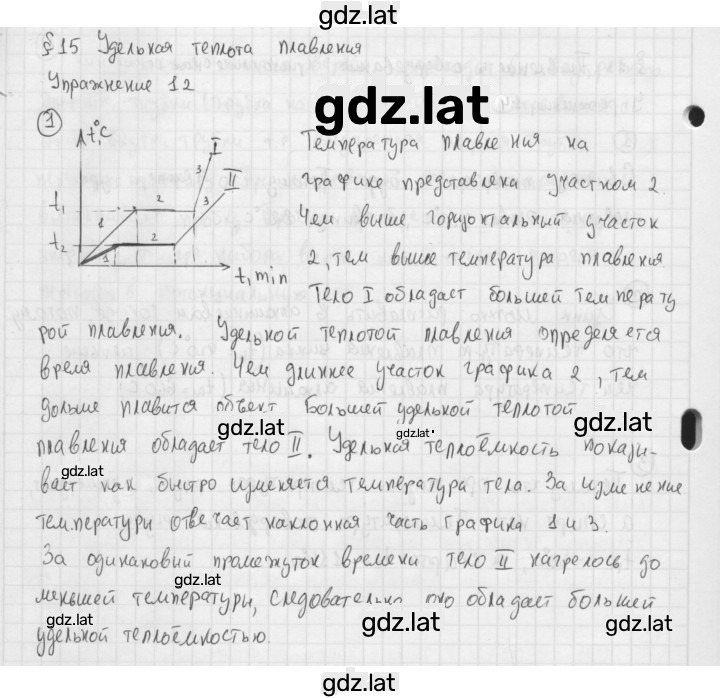 gdz.lat
§15 Удельная теплота плавления
Упражнение 12
gdz.lat
1
t,°C
I
II
3
3
t₁
2
1
t₂
2
1
t, min
Температура плавления на
графике представлена участком 2.
Чем выше горизонтальный участок
2, тем выше температура плавления.
gdz.lat
Тело I обладает большей температу
рой плавления. Удельной теплотой плавления определяется
время плавления. Чем длиннее участок графика 2, тем
дольше плавится объект Большей удельной теплотой
gdz.lat
gdz.lat
плавления обладает тело II. Удельная теплоёмкость показы-
gdz.lat
вает как быстро изменяется температура тела. За изменение
температуры отвечает наклонная часть графика 1 и 3.
За одинаковый промежуток времени тело II нагрелось до
gdz.lat
меньшей температуры, следовательно оно обладает большей
gdz.lat
удельной теплоёмкостью.
gdz.lat
gdz.lat